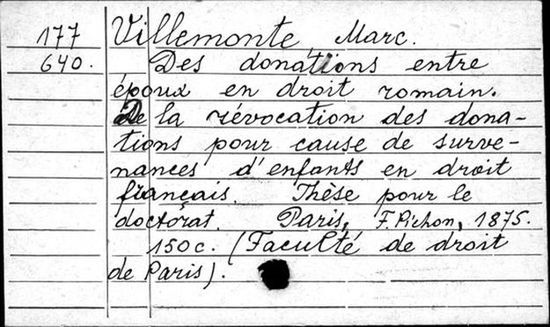 177 Villemonte, Marc.
640. Des donations entre
époux en droit romain.
De la révocation des dona-
tions pour cause de surve-
nances d'enfants en droit
français. Thèse pour le
doctorat. Paris, F. Pichon, 1875.
150c. (Faculté de droit
de Paris).